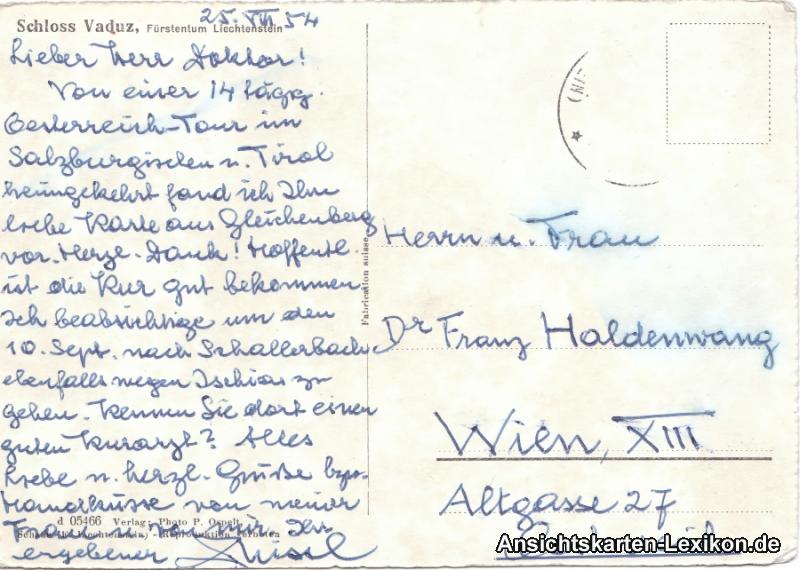 Schloss Vaduz, Fürstentum Liechtenstein
25. VIII 54
Lieber Herr Doktor!
Von einer 14 tägg.
Oesterreich-Tour im
Salzburgischen u. Tirol
heimgekehrt fand ich Ihre
liebe Karte aus Gleichenberg
vor. Herzl. Dank! Hoffentl.
ist die Kur gut bekommen.
Ich beabsichtige um den
10. Sept. nach Schallerbach
ebenfalls wegen Ischias zu
gehen. Kennen Sie dort einen
guten Kurarzt? Alles
Liebe u. herzl. Grüße bzw.
Handküsse von meiner
Frau u. von mir. Ihr
ergebener
d 05466 Verlag: Photo P. Ospelt,
Reproduktion verboten
Fabrication suisse
Herrn u. Frau
Dr Franz Haldenwang
Wien, XIII
Altgasse 27
Oesterreich
Ansichtskarten-Lexikon.de